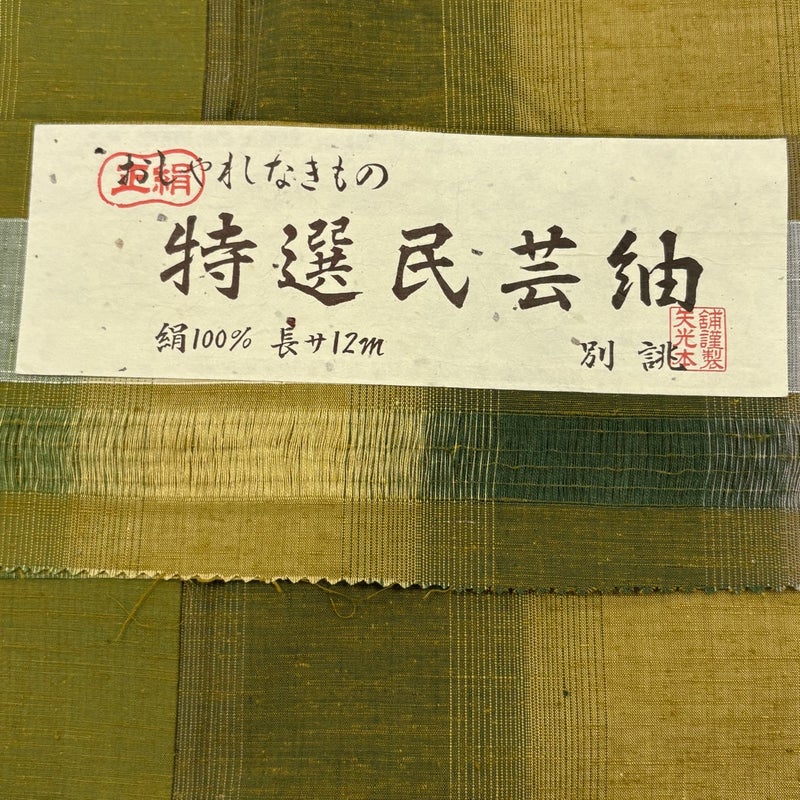 正絹
おしゃれなきもの
特選民芸紬
絹100% 長サ12m 別誂
矢光本
舗謹製